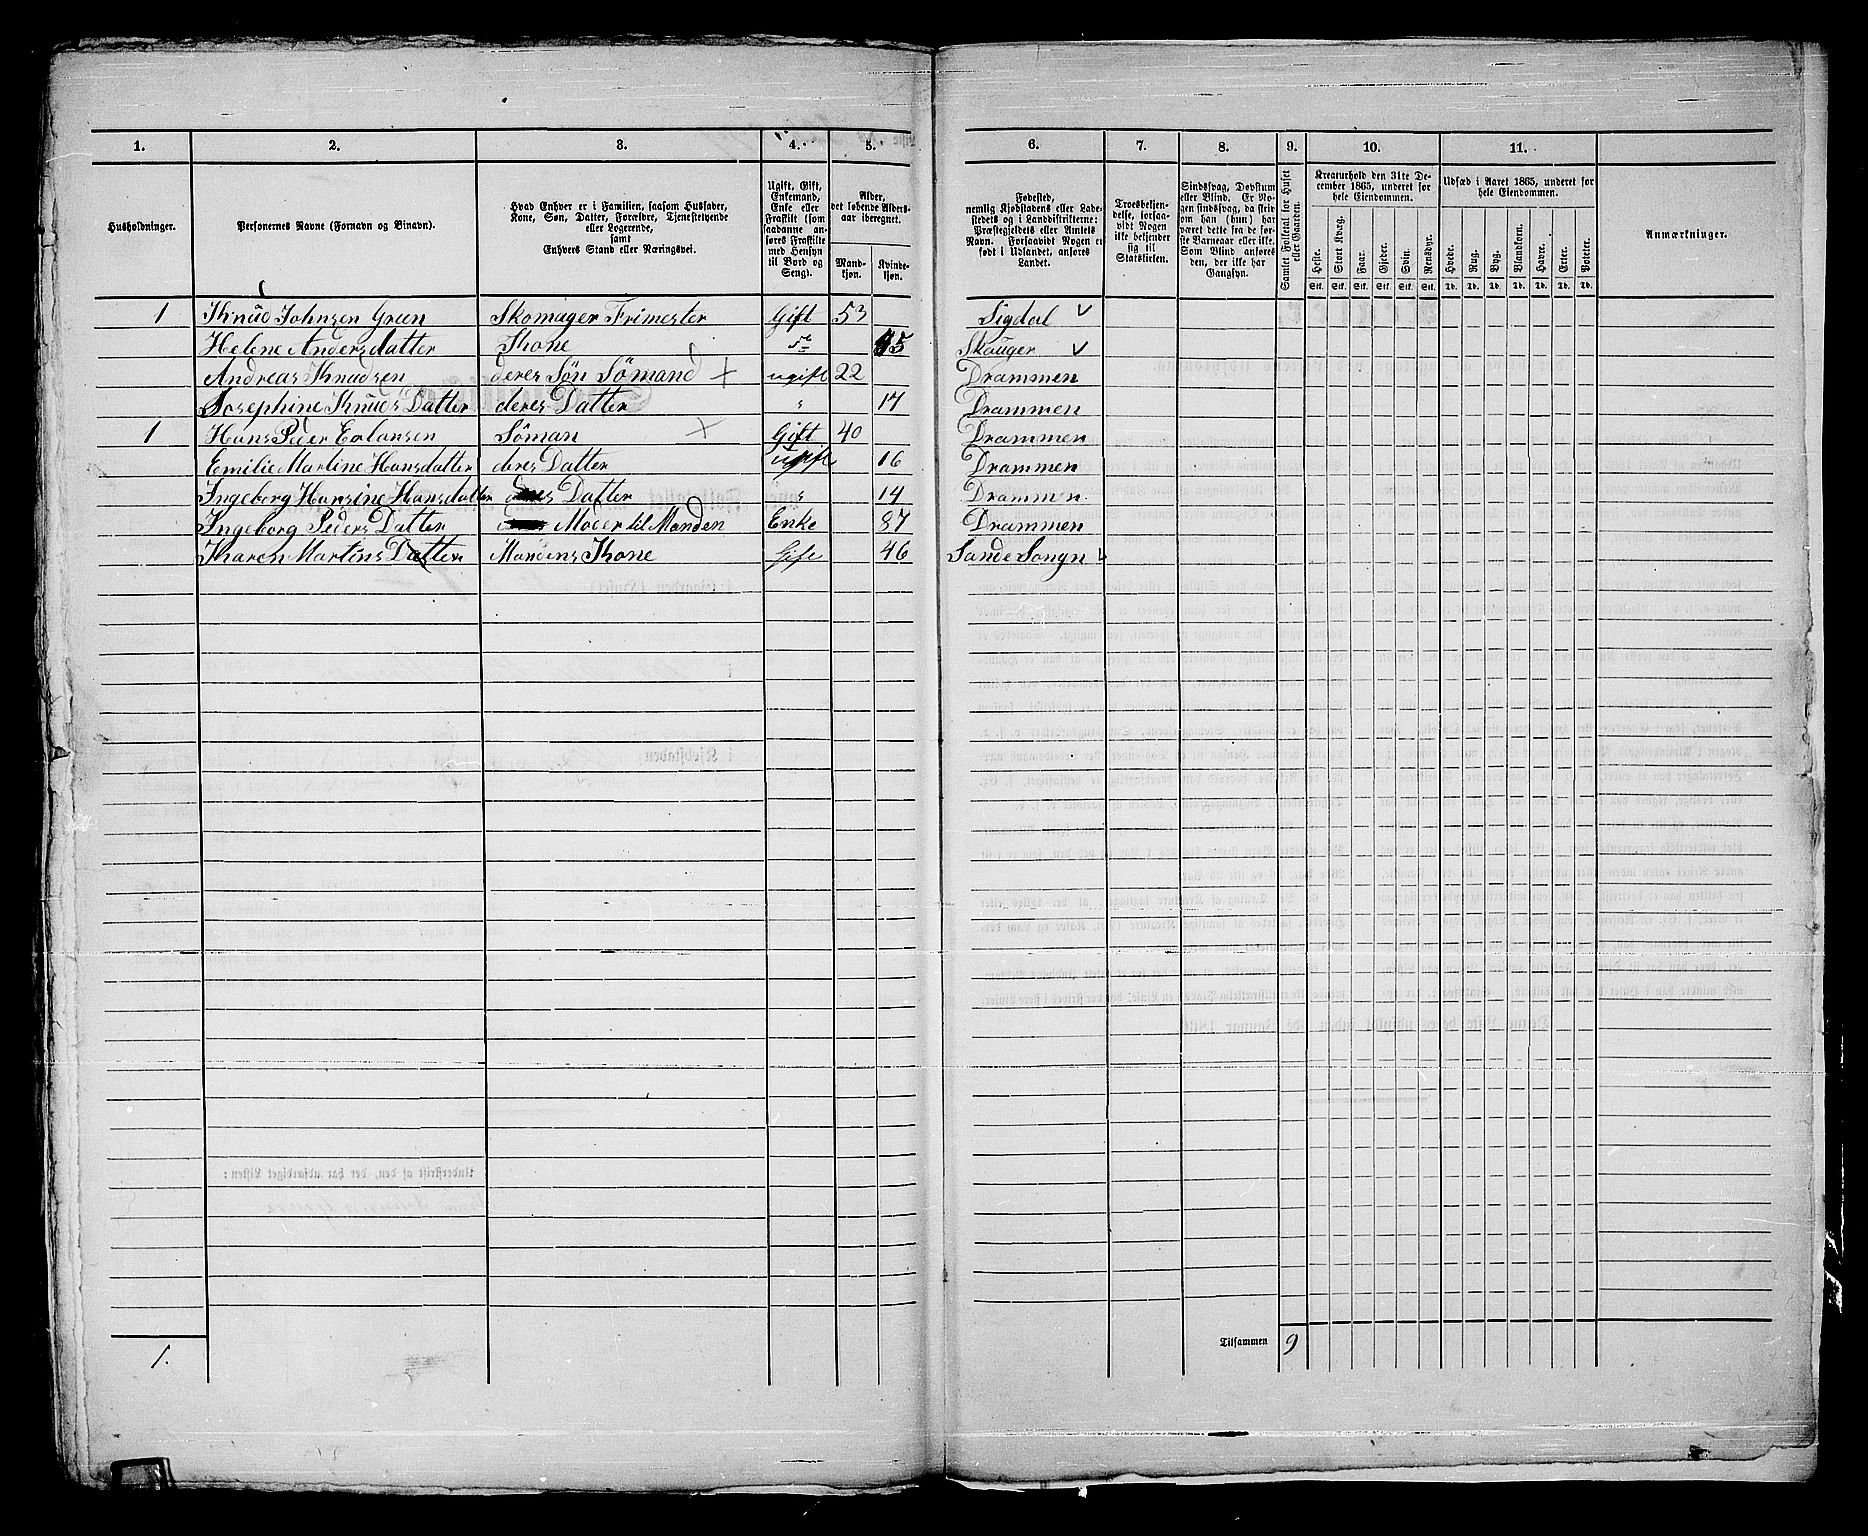 1. 2. 3. 4. 5. 6. 7. 8. 9. 10. 11.
Husholdninger.
Personernes Navne (Fornavn og Binavn).
Hvad Enhver er i Familien, saasom Husfader,
Kone, Søn, Datter, Forældre, Tjenestetyende
eller Logerende,
samt
Enhvers Stand eller Næringsvei.
Ugift, Gift,
Enkemand,
Enke eller
Fraskilt (som
saadanne an-
føres Fraskilte
med Hensyn
til Bord og
Seng).
Alder,
det løbende Alders-
aar iberegnet.
Mand-
kjøn.
Kvinde-
kjøn.
Fødested,
nemlig Kjøbstadens eller Lade-
stedets og i Landdistrikterne:
Præstegjeldets eller Amtets
Navn. Forsaavidt Nogen er
født i Udlandet, anføres
Landet.
Troesbekjen-
delse, forsaa-
vidt Nogen
ikke bekjender
sig til
Statskirken.
Sindssvag, Døvstum
eller Blind. Er No-
gen sindssvag, da skrives
om han (hun) har
været dette fra de før-
ste Barneaar eller ikke.
Som Blind anføres
den, der ikke har
Gangsyn.
Samlet Folketal for Huset
eller Gaarden.
Kreaturhold den 31te De-
cember 1865, underet for
hele Eiendommen.
Heste. Stort Kvæg. Faar. Gjeder. Svin. Rensdyr.
Stk. Stk. Stk. Stk. Stk. Stk.
Udsæd i Aaret 1865, underet for
hele Eiendommen.
Hvede. Rug. Byg. Blandkorn. Havre. Erter. Poteter.
Td. Td. Td. Td. Td. Td. Td.
Anmærkninger.
1 Knud Johnsen Green Skomager Frimester Gift 53 Sigdal
Helene Andersdatter Kone Skouger
Andreas Knudsen deres Søn Sömand ugift 22 Drammen
Josephine Knuds Datter deres Datter " 17 Drammen
1 Hans Peder Erlansen Söman Gift 40 Drammen
Emilie Martine Hansdatter deres Datter ugift 16 Drammen
Ingeborg Hansine Hansdatter Datter " 14 Drammen
Ingeborg Peders Datter Moder til Manden Enke 87 Drammen
Karen Martins Datter Mandens Kone Gift 46 Sande Songn
1. Tilsammen 9